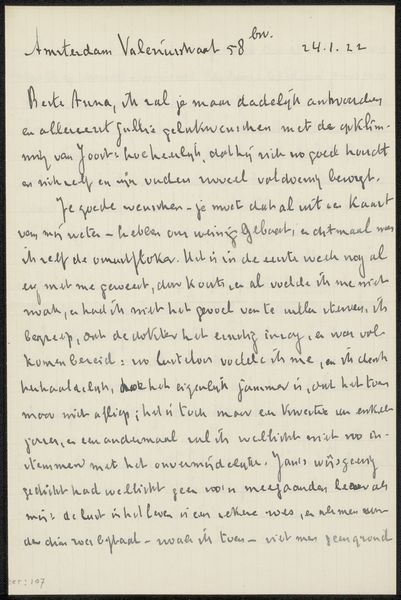 Amsterdam Valeriusstraat 58 bv. 24.1.22
Beste Anna, ik zal je maar dadelijk antwoorden
en allereerst jullie gelukwenschen met de opklim-
ming van Joost: hoe heerlijk, dat hij zich zo goed houdt
en zichzelf en zijn ouders zoveel voldoening bezorgt.
Je goede wenschen - je moet dat al uit een kaart
van mij weten - hebben ons weinig gebaat, en ditmaal was
ik zelf de Het is in de eerste week nog al
erg met me geweest, door koorts, en al voelde ik me niet
zwak, en had ik niet het gevoel van te zullen sterven, ik
begreep, dat de dokter het ernstig inzag, en was vol-
komen bereid: zo voelde ik me, en ik dacht
herhaaldelijk, hoe het eigenlijk jammer is, dat het toen
maar niet afliep; het is toch maar een kwestie van enkele
jaren, en een andermaal zal ik wellicht niet zo in-
stemmen met het onvermijdelijke. Jan's wijsgeerig
gedicht had wellicht geen zo'n meegaanden lezer als
mij: de lust in het leven is een zekere roes, en als men zon-
der dien roes - zoals ik toen - ziet men geen grond